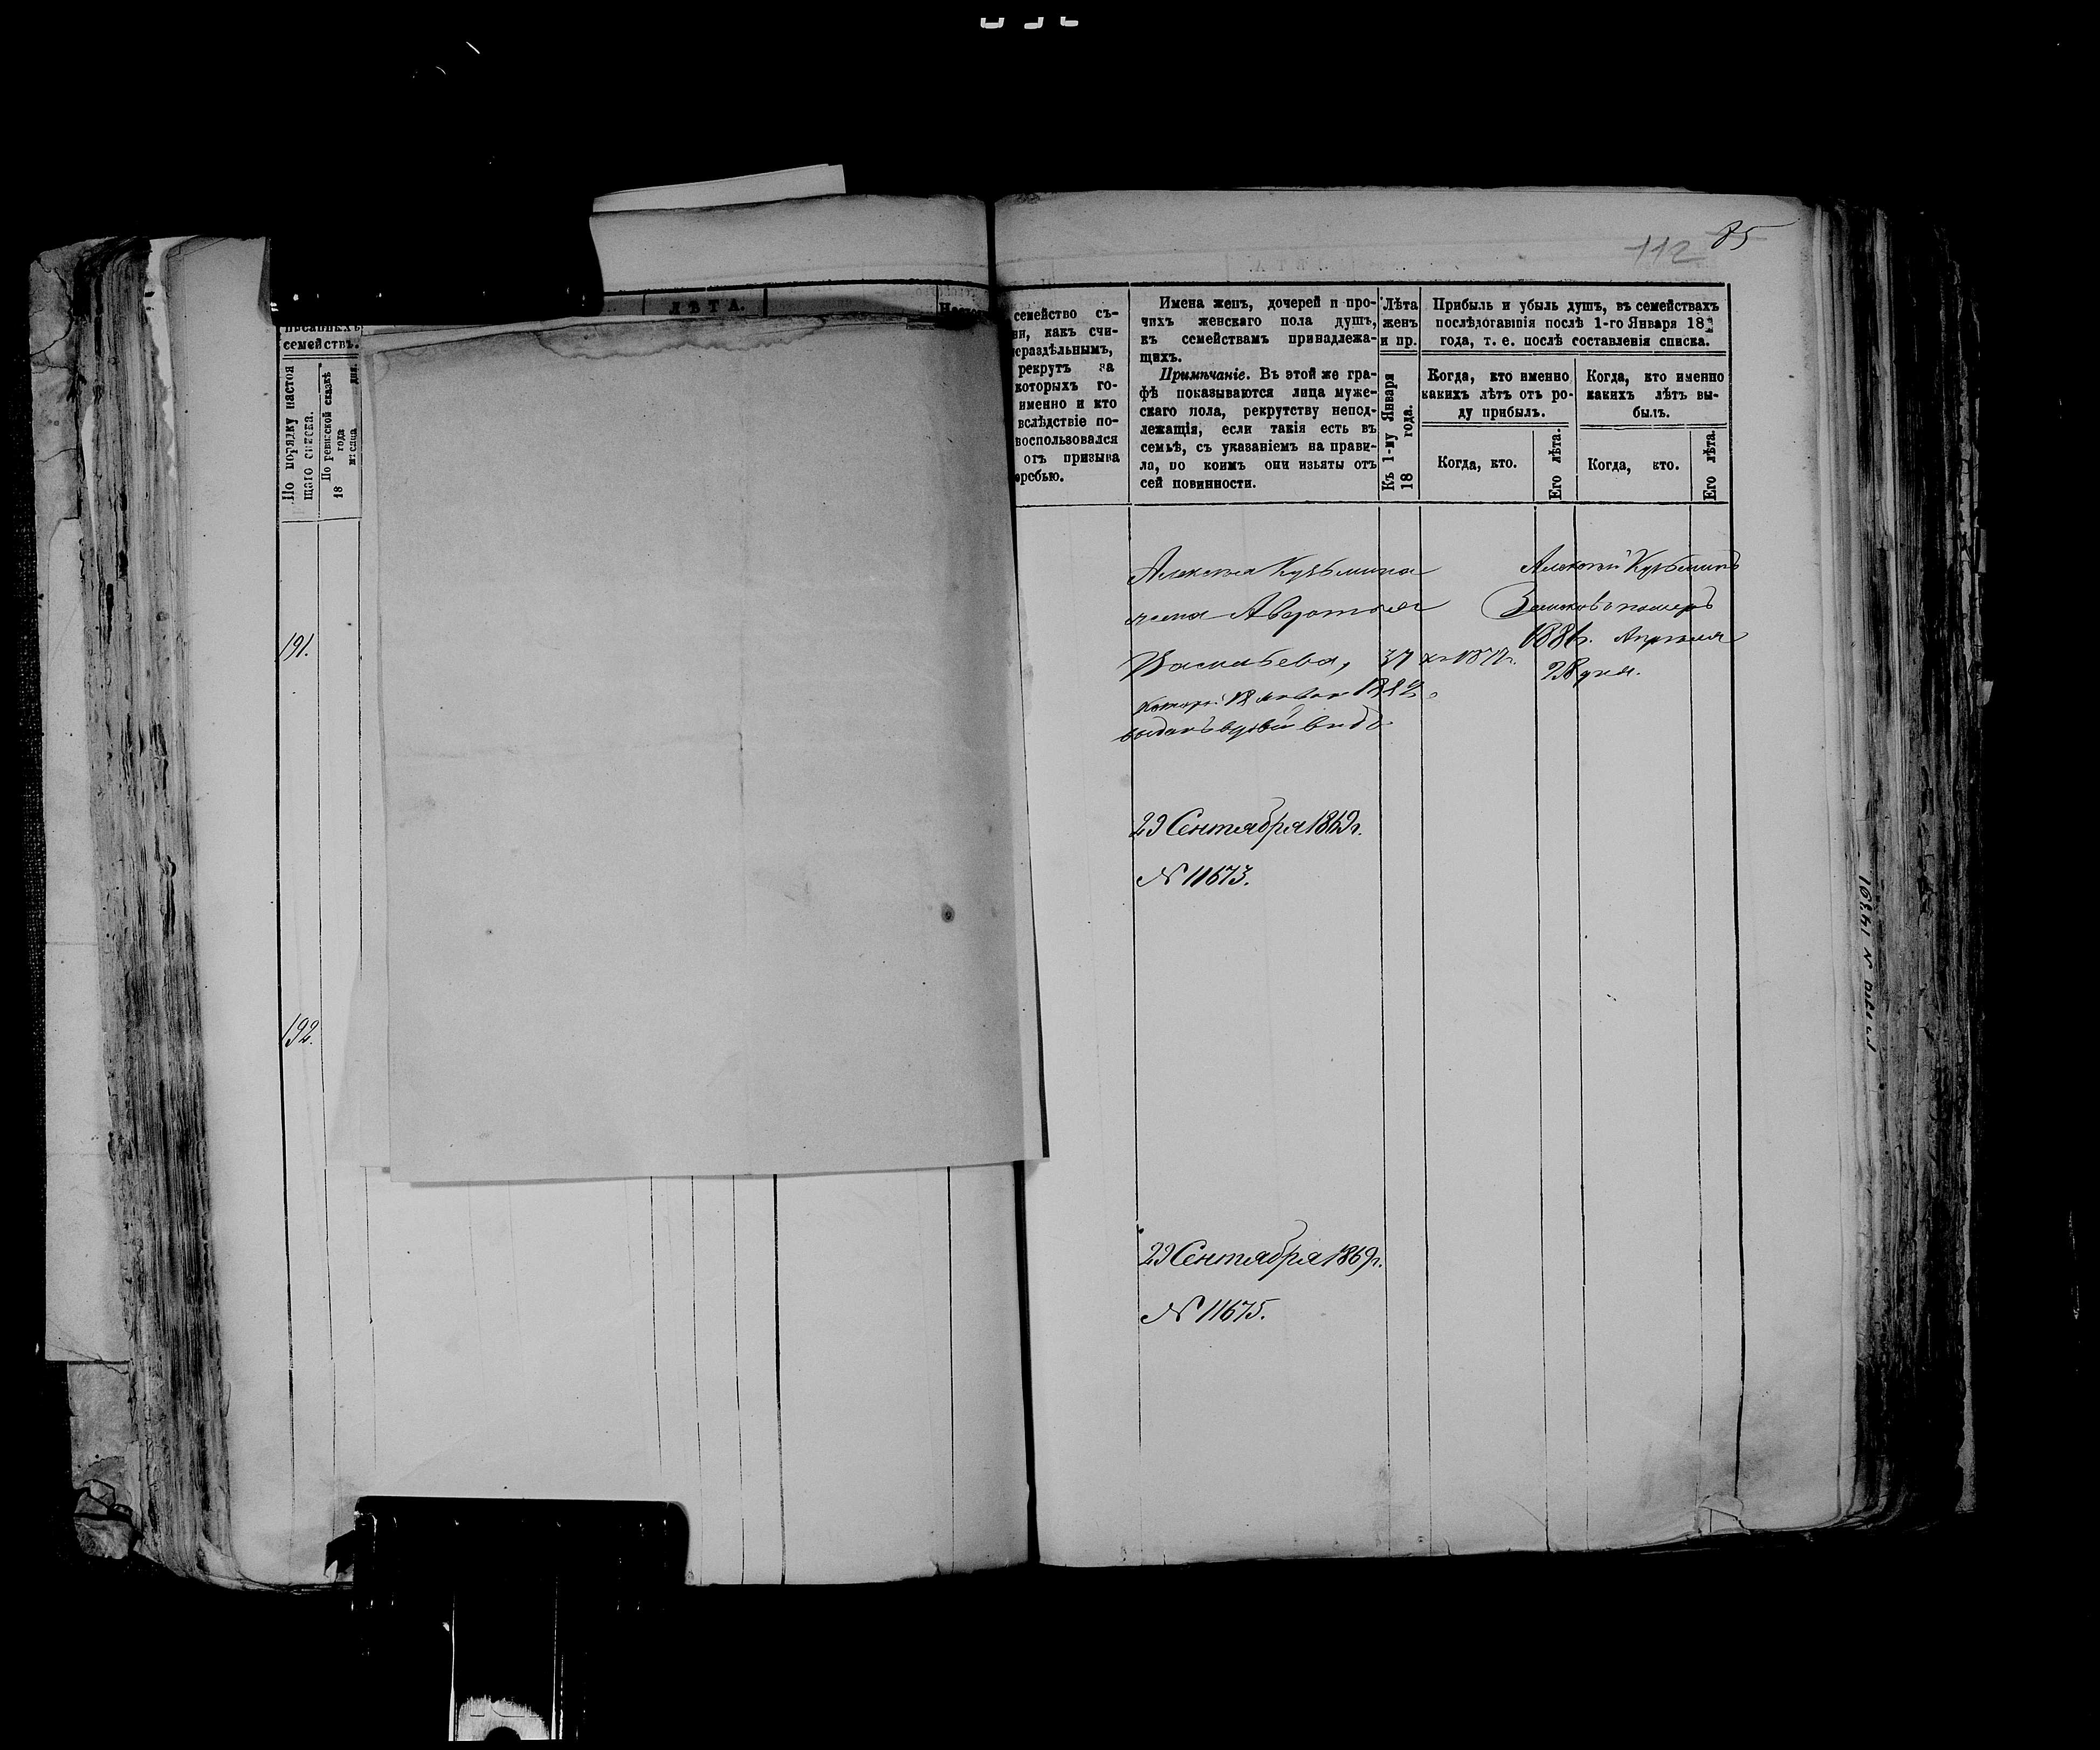 112 85
ЛѢТА.
писанныхъ
семействъ.
По порядку настоя
щаго списка.
По ревизской сказкѣ
18 года
мѣсяца дня.
семейство съ-
ни, какъ счи-
нераздѣльнымъ,
рекрутъ за
которыхъ го-
именно и кто
вслѣдствіе по-
воспользовался
отъ призыва
жребью.
Имена женъ, дочерей и про-
чихъ женскаго пола душъ,
къ семействамъ принадлежа-
щихъ.
Примѣчаніе. Въ этой же гра-
фѣ показываются лица муже-
скаго пола, рекрутству непод-
лежащія, если такія есть въ
семьѣ, съ указаніемъ на прави-
ла, по коимъ они изъяты отъ
сей повинности.
Лѣта
женъ
и пр.
Къ 1-му Января
18 года.
Прибыль и убыль душъ, въ семействахъ
послѣдовавшія послѣ 1-го Января 18
года, т. е. послѣ составленія списка.
Когда, кто именно
какихъ лѣтъ отъ ро-
ду прибылъ.
Когда, кто именно
какихъ лѣтъ вы-
былъ.
Когда, кто.
Его лѣта.
Когда, кто.
Его лѣта.
191.
Алексѣя Кузьмина
жена Авдотья
Васильева, 37
выданъ вдовій видъ
Алексѣй Кузьминъ
померъ
1881г. Апрѣля
28 дня.
29 Сентября 1869г.
N 11673.
192.
29 Сентября 1869г.
N 11675.